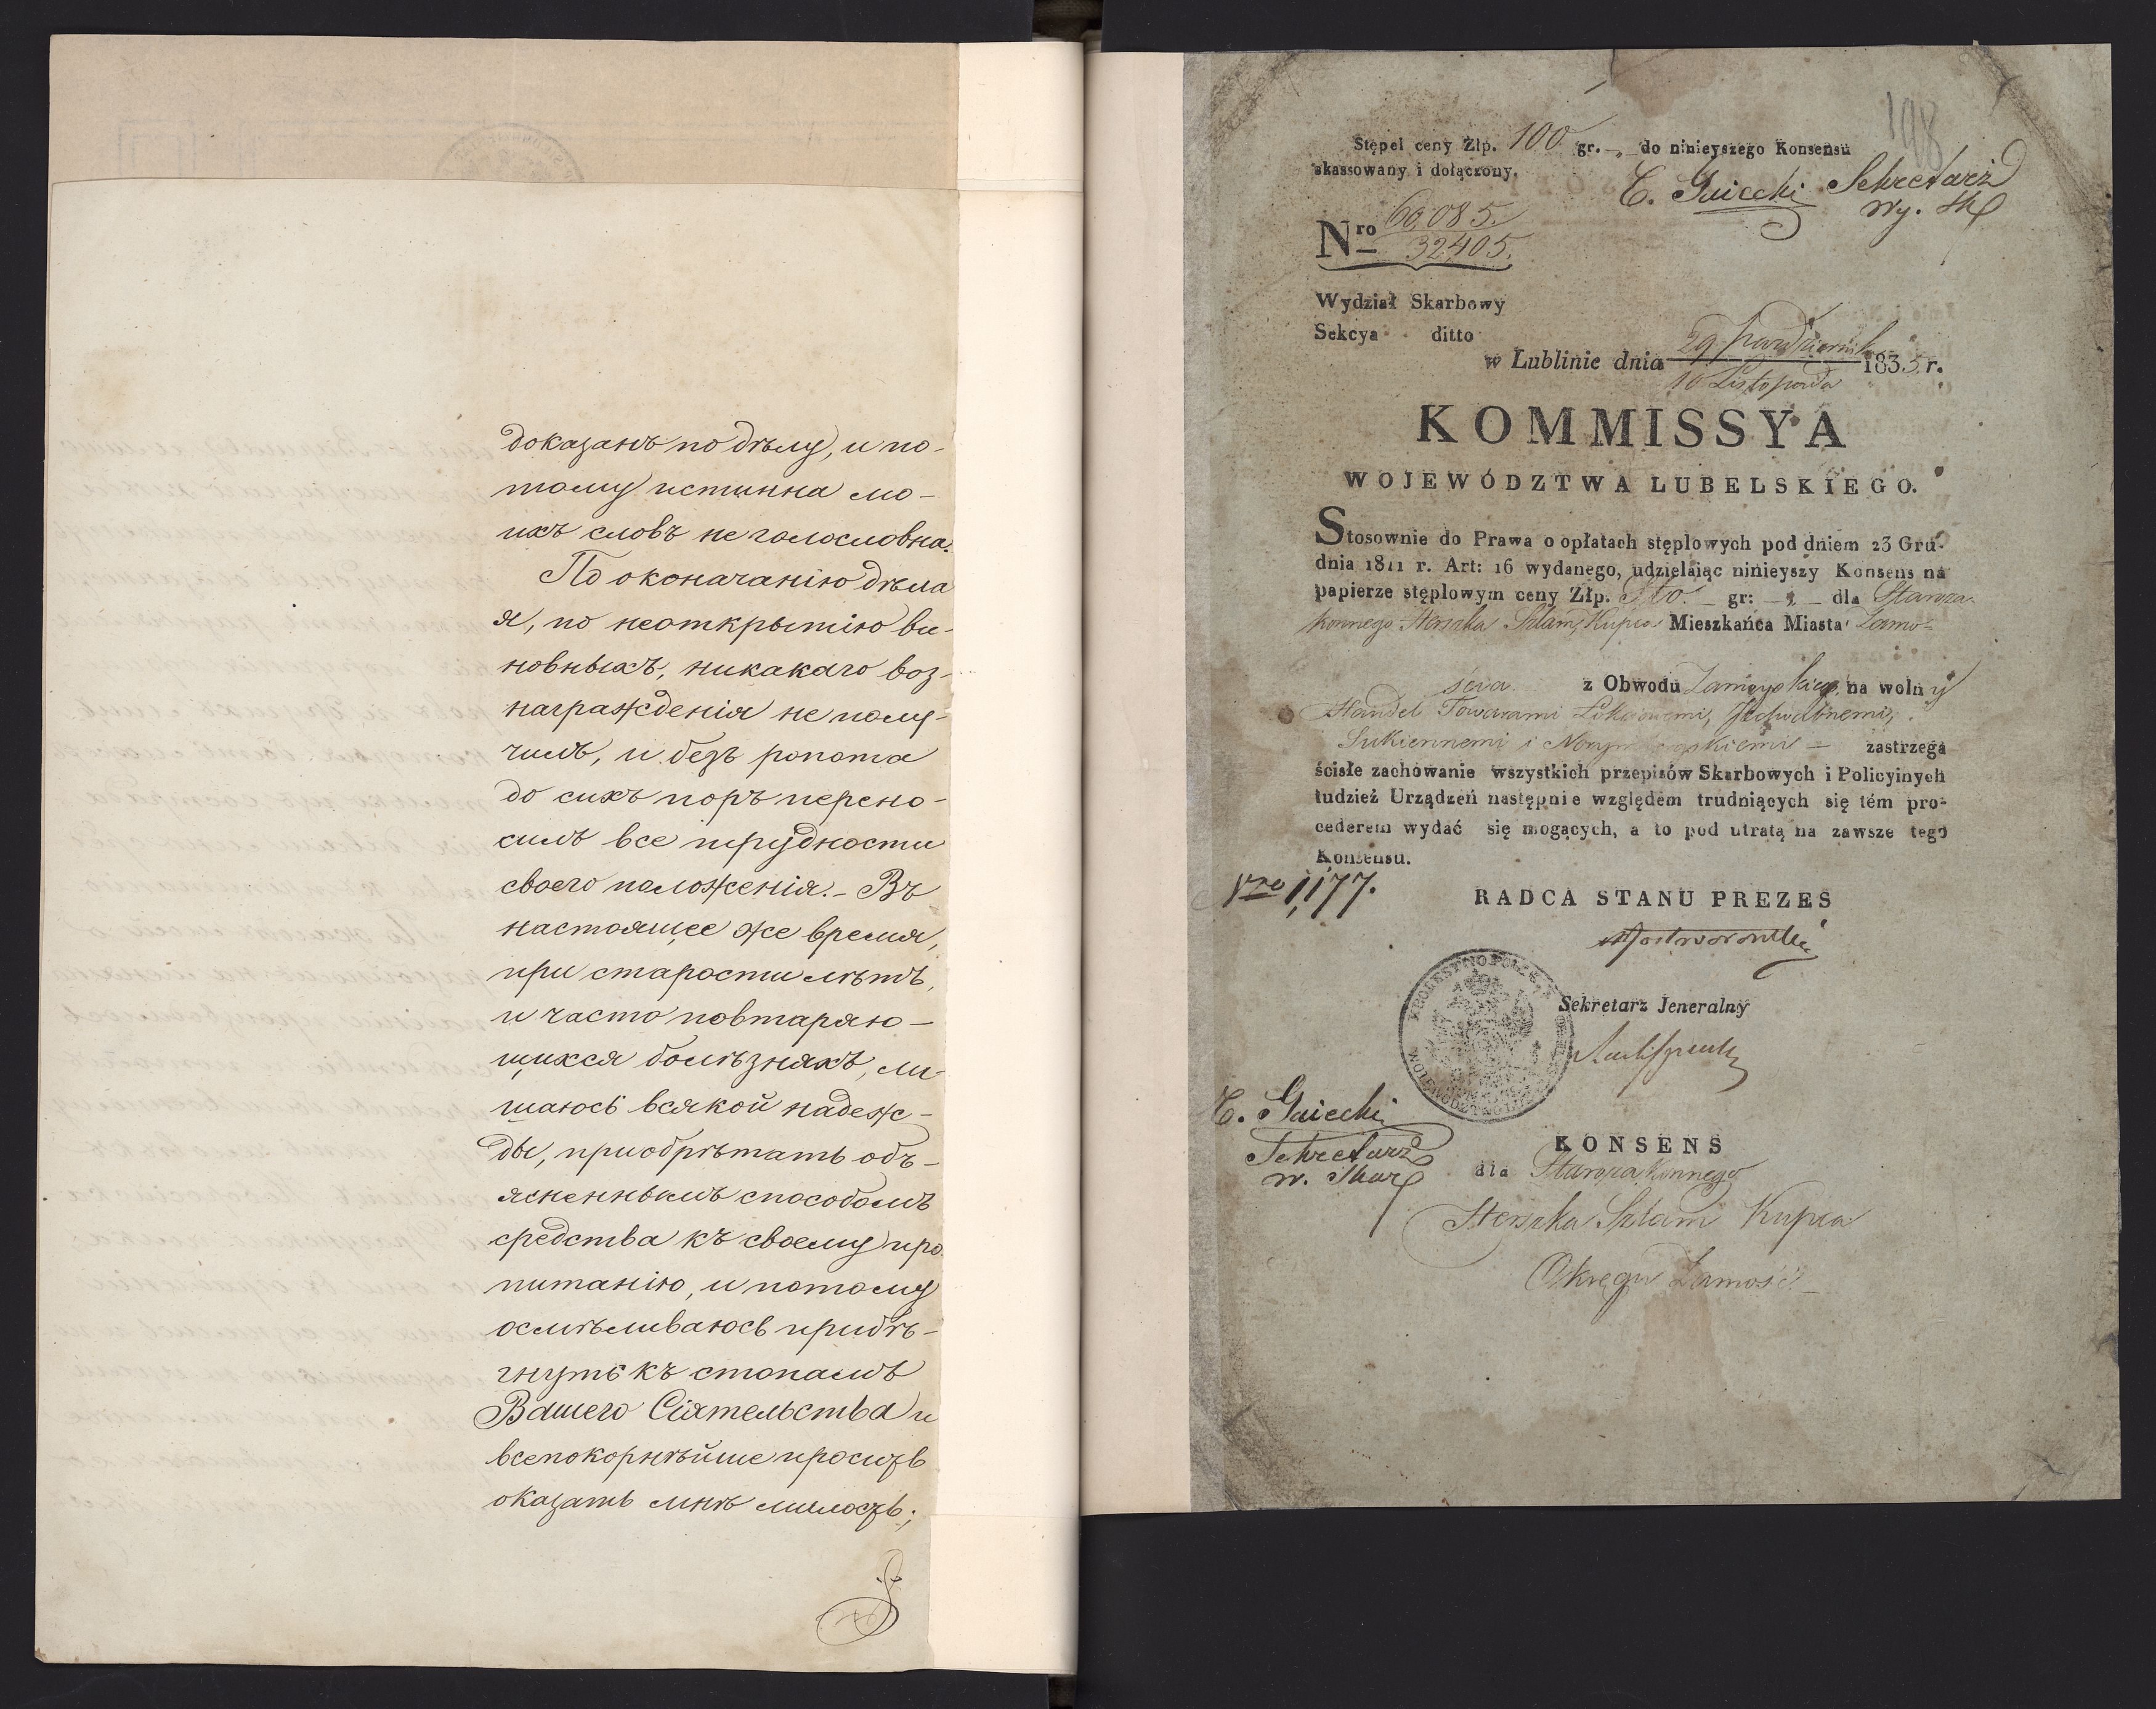 доказанъ по дѣлу, и по-
тому истинна мо-
ихъ словъ не голословна.
По окончанію дѣла
я, по неоткрытію ви-
новныхъ, никакаго воз-
награжденія не полу-
чилъ, и безъ ропота
до сихъ поръ перено-
силъ все трудности
своего положенія. - Въ
настоящее же время,
при старости лѣтъ,
и часто повтаряю-
щихся болѣзняхъ, ли-
шаюсь всякой надеж-
ды, приобрѣтать объ-
ясненнымъ способомъ
средства къ своему про
питанію, и потому
осмѣливаюсь прибѣ-
гнуть къ стопамъ
Вашего Сіятельства и
всепокорнѣйше просить
оказать мнѣ милость;
198
Stępel ceny Złp. 100 gr. - „ - do ninieyszego Konsensu
skassowany i dołączony.
C. Gaiecki Sekretarz
Wy. Sk
Nro 60,085.
32405.
Wydział Skarbowy
Sekcya ditto
w Lublinie dnia 29 Października 1835 r.
10 Listopada
KOMMISSYA
WOJEWÓDZTWA LUBELSKIEGO.
Stosownie do Prawa o opłatach stęplowych pod dniem 23 Gru-
dnia 1811 r. Art: 16 wydanego, udzielaiąc ninieyszy Konsens na
papierze stęplowym ceny Złp. Sto. gr: - „ - dla Staroza-
konnego Herszka Szlam, Kupca Mieszkańca Miasta Zamo-
ścia z Obwodu Zamoyskiego, na wolny
Handel Towarami Łokciowemi, Jedwabnemi,
Sukiennemi i Norymberskiemi - zastrzega
ścisłe zachowanie wszystkich przepisów Skarbowych i Policyinych
tudzież Urządzeń następnie względem trudniących się tém pro-
cederem wydać się mogących, a to pod utratą na zawsze tego
Konsensu.
Nro 1,177.
RADCA STANU PREZES
KROLESTWO POLSKIE
WOIEWODZTWO
Sekretarz Jeneralny
C. Gaiecki
Sekretarz
w. Skar
KONSENS
dla Starozakonnego
Herszka Szlam Kupca
Okręgu Zamość